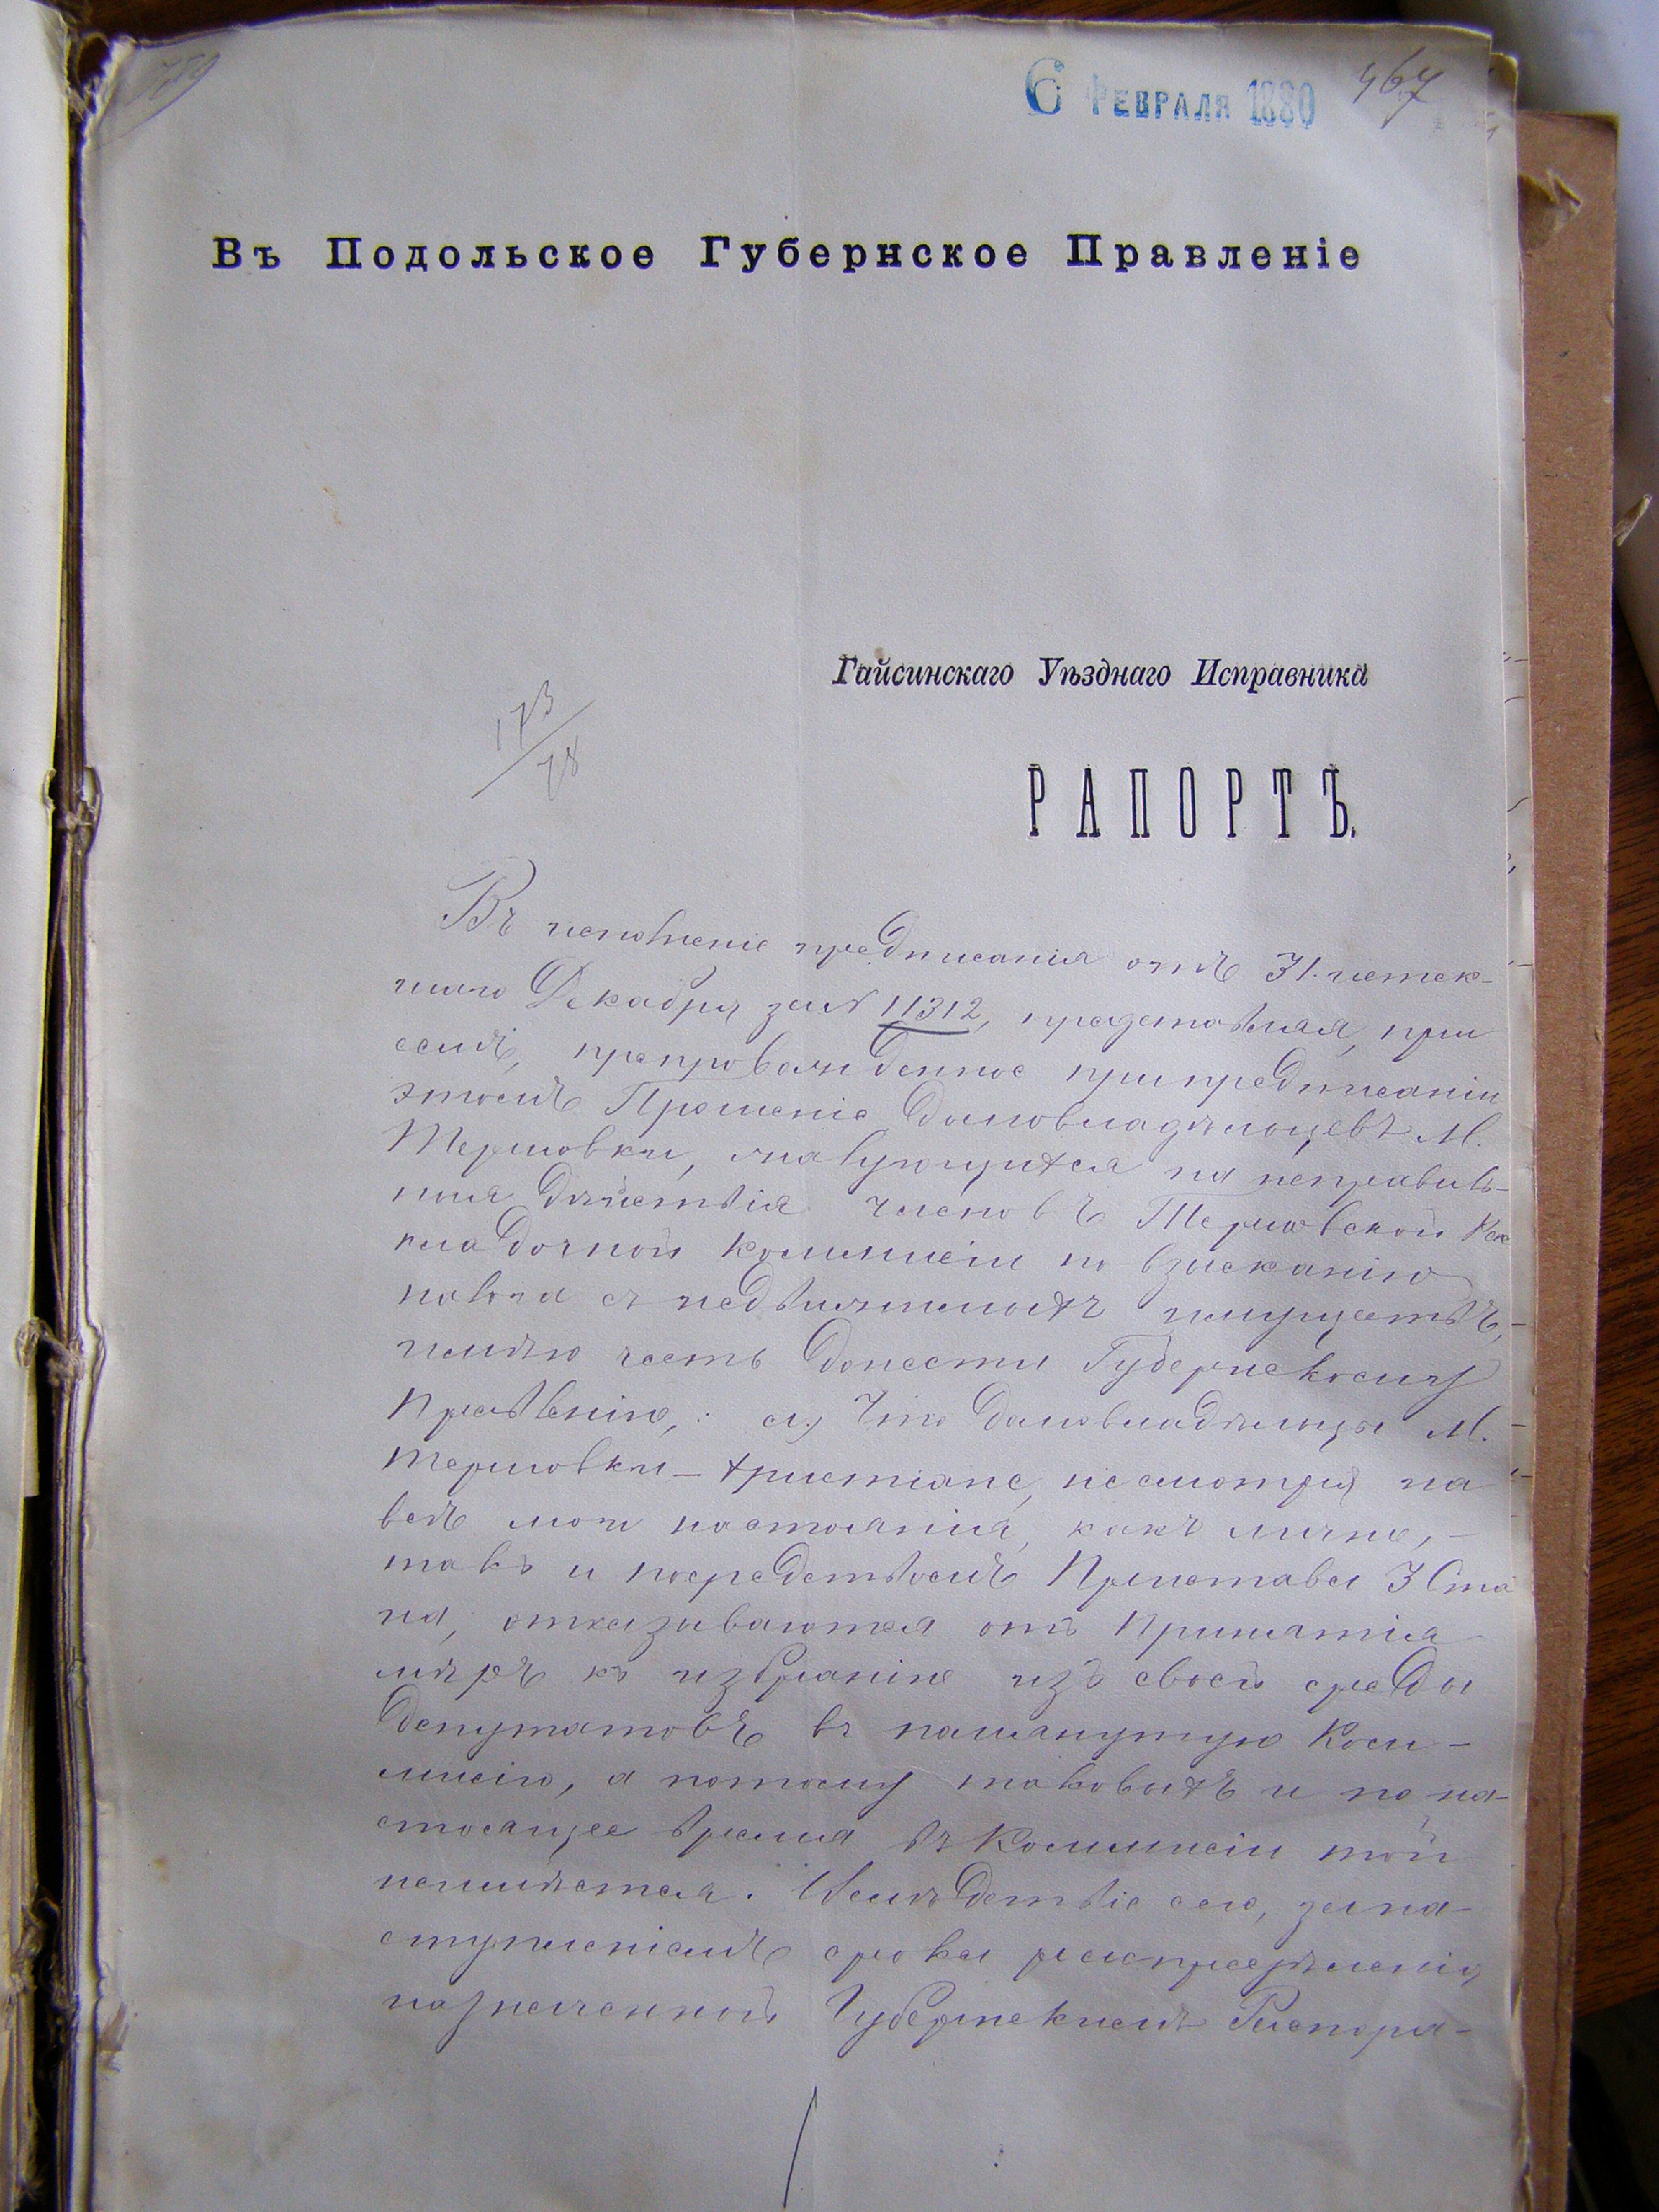 6 Февраля 1880 467
Въ Подольское Губернское Правленіе
Гайсинскаго Уѣзднаго Исправника
173/78
РАПОРТЪ.
Въ исполненіе предписанія отъ 31. истек-
шаго Декабря за № 11312, представляя, при
семъ, препровожденное при предписаніи
этомъ Прошеніе домовладѣльцевъ М.
Терновки, жалующихся на неправиль-
ныя дѣйствія членовъ Терновской Рас
кладочной коммисіи по взысканію
налога съ недвижимыхъ имуществъ,-
имѣю честь донести Губернскому
Правленію,: а) Что домовладѣльцы М.
Терновки – христіане, несмотря на
всѣ мои настоянія, какъ лично,-
такъ и посредствомъ Пристава 3 Ста
на, отказываются отъ принятія
мѣръ къ избранію изъ своей среды
депутатовъ въ помянутую Ком-
мисію, а потому таковыхъ и по на-
стоящее время въ Коммисіи той
неимѣется. Вслѣдствіе сего, за на-
ступленіемъ срока распредѣленія
назначенной Губернскимъ Распоря-